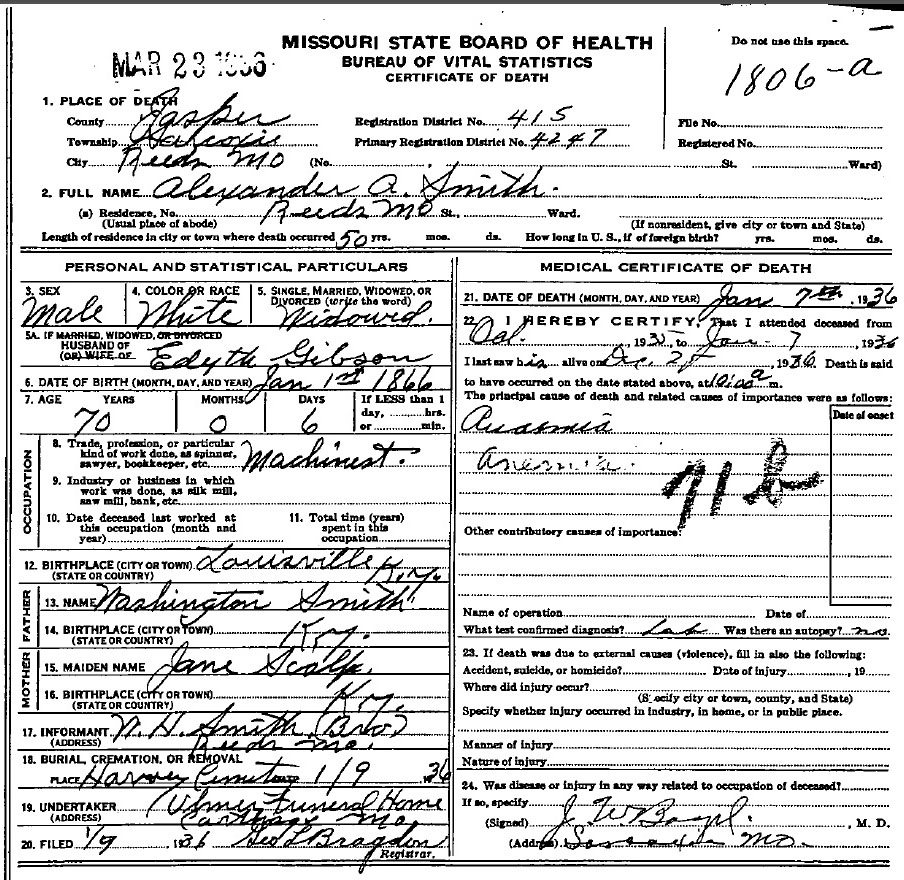 MAR 23 1936
MISSOURI STATE BOARD OF HEALTH
BUREAU OF VITAL STATISTICS
CERTIFICATE OF DEATH
Do not use this space.
1806-a
1. PLACE OF DEATH
County Jasper Registration District No. 415 File No.
Township Primary Registration District No. 4247 Registered No.
City Reeds Mo (No. St. Ward)
2. FULL NAME Alexander A. Smith.
(a) Residence, No. Reeds Mo St., Ward.
(Usual place of abode) (If nonresident, give city or town and State)
Length of residence in city or town where death occurred 50 yrs. mos. ds. How long in U. S., if of foreign birth? yrs. mos. ds.
PERSONAL AND STATISTICAL PARTICULARS
3. SEX Male
4. COLOR OR RACE White
5. SINGLE, MARRIED, WIDOWED, OR DIVORCED (write the word) Widowed.
5A. IF MARRIED, WIDOWED, OR DIVORCED
HUSBAND OF
(OR) WIFE OF Edyth Gibson
6. DATE OF BIRTH (MONTH, DAY, AND YEAR) Jan 1st 1866
7. AGE YEARS MONTHS DAYS If LESS than 1
day, hrs.
70 0 6 or min.
OCCUPATION
8. Trade, profession, or particular
kind of work done, as spinner,
sawyer, bookkeeper, etc. Machinest.
9. Industry or business in which
work was done, as silk mill,
saw mill, bank, etc.
10. Date deceased last worked at
this occupation (month and
year)
11. Total time (years)
spent in this
occupation
12. BIRTHPLACE (CITY OR TOWN) Louisville
(STATE OR COUNTRY) Ky.
FATHER
13. NAME Washington Smith
14. BIRTHPLACE (CITY OR TOWN)
(STATE OR COUNTRY) Ky.
MOTHER
15. MAIDEN NAME Jane
16. BIRTHPLACE (CITY OR TOWN)
(STATE OR COUNTRY) Ky.
17. INFORMANT Smith (Bro)
(ADDRESS) Reeds Mo.
18. BURIAL, CREMATION, OR REMOVAL
PLACE Harvey 1/9 36
19. UNDERTAKER Ulmer Funeral Home
(ADDRESS) Carthage Mo.
20. FILED 1/9 1936 Geo L Bragdon
Registrar.
MEDICAL CERTIFICATE OF DEATH
21. DATE OF DEATH (MONTH, DAY, AND YEAR) Jan 7th, 1936
22. I HEREBY CERTIFY, That I attended deceased from
1935, to Jan 7, 1936
I last saw him alive on Dec. 1936 Death is said
to have occurred on the date stated above, at a m.
The principal cause of death and related causes of importance were as follows:
Date of onset
Anaemia
anemia.
71 b
Other contributory causes of importance:
Name of operation Date of
What test confirmed diagnosis? Lab Was there an autopsy? no
23. If death was due to external causes (violence), fill in also the following:
Accident, suicide, or homicide? Date of injury , 19
Where did injury occur?
(Specify city or town, county, and State)
Specify whether injury occurred in industry, in home, or in public place.
Manner of injury
Nature of injury
24. Was disease or injury in any way related to occupation of deceased?
If so, specify
(Signed) J. W. , M. D.
(Address) Mo.